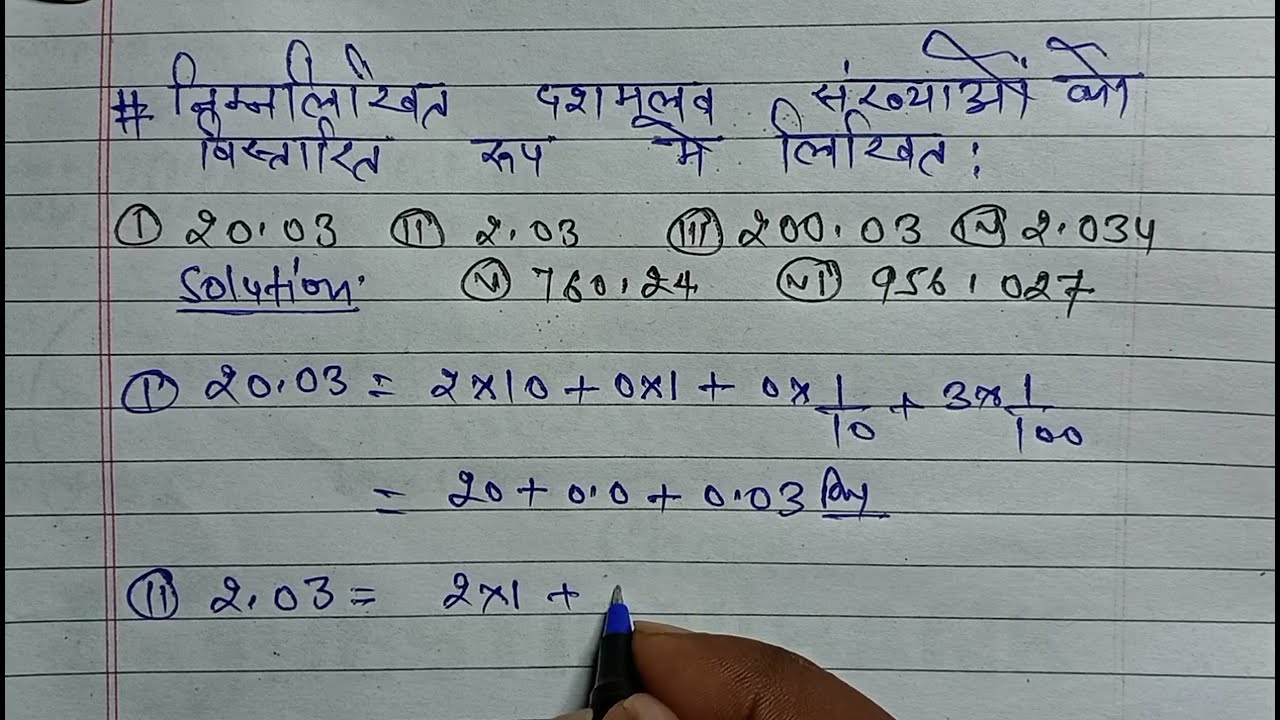 # निम्नलिखित दशमूलव संख्याओं को
विस्तारित रूप में लिखित :
(I) 20.03 (II) 2.03 (III) 200.03 (IV) 2.034
Solution: (V) 760.24 (VI) 956.027
(I) 20.03 = 2×10 + 0×1 + 0×1/10 + 3×1/100
= 20 + 0.0 + 0.03 Ans
(II) 2.03 = 2×1 +